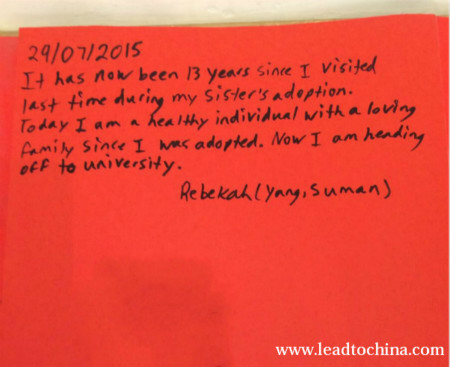 29/07/2015
It has now been 13 years since I visited
last time during my sister's adoption.
Today I am a healthy individual with a loving
family since I was adopted. Now I am heading
off to university.
Rebekah (Yang, Suman)
www.leadtochina.com